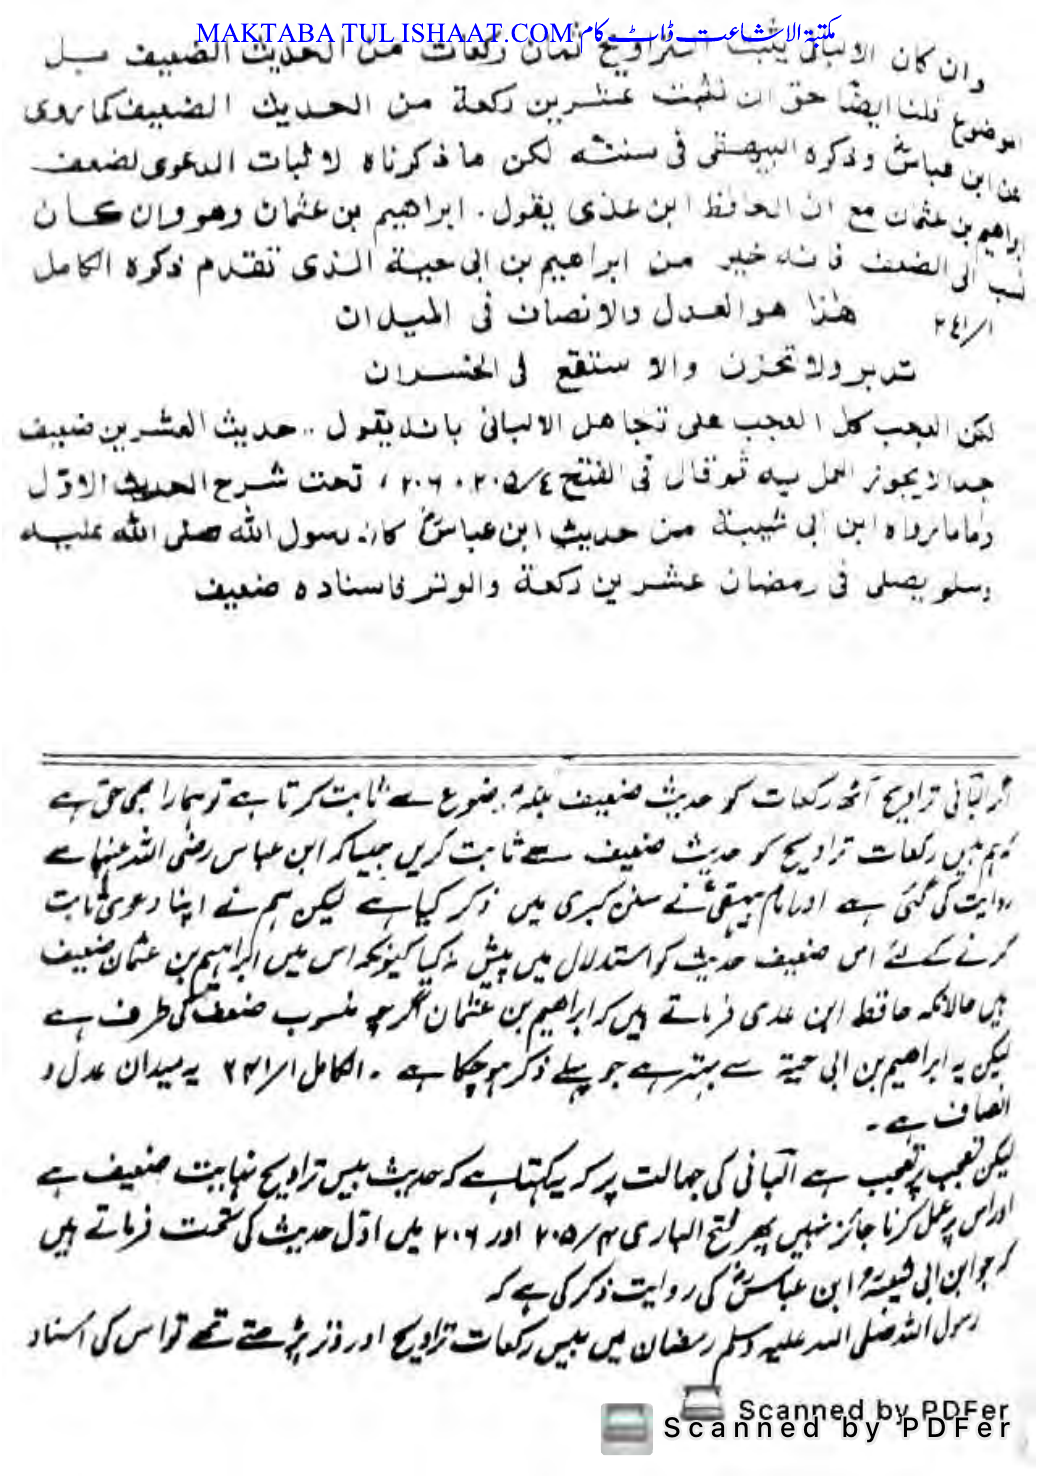 MAKTABA TUL ISHAAT.COM مکتبة الاشاعت ڈاٹ کام
وان كان الالبانى يثبت التراويح ثمان ركعات من الحديث الضعيف بل
الموضوع فلنا ايضًا حق ان نثبت عشرين ركعة من الحديث الضعيف كما روى
عن ابن عباسؓ وذكره البيهقى فى سننه لكن ما ذكرناه لاثبات الدعوى لضعف
ابراهيم بن عثمان مع ان الحافظ ابن عدى يقول . ابراهيم بن عثمان وهو وان كان
نسب الى الضعف فانه خير من ابراهيم بن ابى حية الذى تقدم ذكره الكامل
٢٤١/١ هٰذا هو العدل والانصاف فى الميدان
تدبر ولا تحزن والا ستقع فى الخسران
لكن العجب كل العجب على تجاهل الالبانى بانه يقول .. حديث العشرين ضعيف
جدا لا يجوز العمل به ثم قال فى الفتح ٢٠٥/٤ ، ٢٠٦ ، تحت شرح الحديث الاوّل
واما ما رواه ابن ابى شيبة من حديث ابن عباسؓ كان رسول الله صلى الله عليه
وسلم يصلى فى رمضان عشرين ركعة والوتر فاسناده ضعيف
اگر البانی تراویح آٹھ رکعات کو حدیث ضعیف بلکہ موضوع سے ثابت کرتا ہے تو ہمارا بھی حق ہے
کہ ہم بیس رکعات تراویح کو حدیث ضعیف سے ثابت کریں جیسا کہ ابن عباس رضی اللہ عنہما سے
روایت کی گئی ہے اور امام بیہقیؒ نے سنن کبری میں ذکر کیا ہے لیکن ہم نے اپنا دعویٰ ثابت
کرنے کے لئے اس ضعیف حدیث کو استدلال میں پیش نہ کیا کیونکہ اس میں ابراہیم بن عثمان ضعیف
ہیں حالانکہ حافظ ابن عدی فرماتے ہیں کہ ابراہیم بن عثمان اگرچہ منسوب ضعف کی طرف ہے
لیکن یہ ابراہیم بن ابی حیۃ سے بہتر ہے جو پہلے ذکر ہو چکا ہے ۔ الکامل ۲۴۱/۱ یہ میدان عدل و
انصاف ہے ۔
لیکن تعجب پر تعجب ہے البانی کی جہالت پر کہ یہ کہتا ہے کہ حدیث بیس تراویح نہایت ضعیف ہے
اور اس پر عمل کرنا جائز نہیں پھر فتح الباری ۲۰۵/۴ اور ۲۰۶ میں اوّل حدیث کی تحت فرماتے ہیں
کہ جو ابن ابی شیبۃ و ابن عباسؓ کی روایت ذکر کی ہے کہ
رسول اللہ صلی اللہ علیہ وسلم رمضان میں بیس رکعات تراویح اور وتر پڑھتے تھے تو اس کی اسناد
Scanned by PDFer
Scanned by PDFer